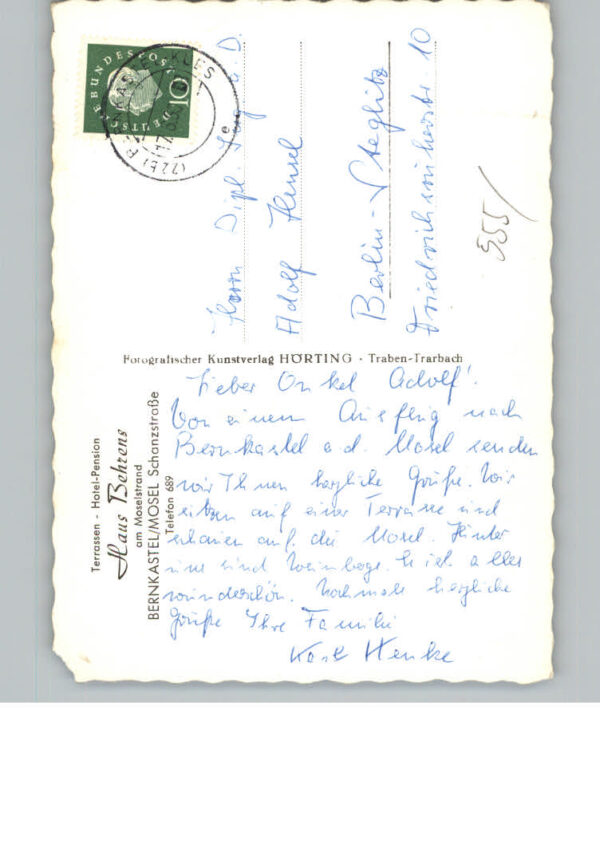 DEUTSCHE BUNDESPOST
10
(22b) BERNKASTEL-KUES
e
Herrn Dipl. Ing. a. D.
Adolf Hensel
Berlin-Steglitz
10
555/
Fotografischer Kunstverlag HÖRTING - Traben-Trarbach
Terrassen - Hotel-Pension
Haus Behrens
am Moselstrand
BERNKASTEL/MOSEL Schanzstraße
Telefon 689
Lieber Onkel Adolf!
Von einem Ausflug nach
Bernkastel a. d. Mosel senden
wir Ihnen herzliche Grüße. Wir
sitzen auf einer Terrasse und
schauen auf die Mosel. Hinter
uns sind Weinberge. Es ist alles
wunderschön. Nochmals herzliche
Grüße Ihre Familie
Karl Henke